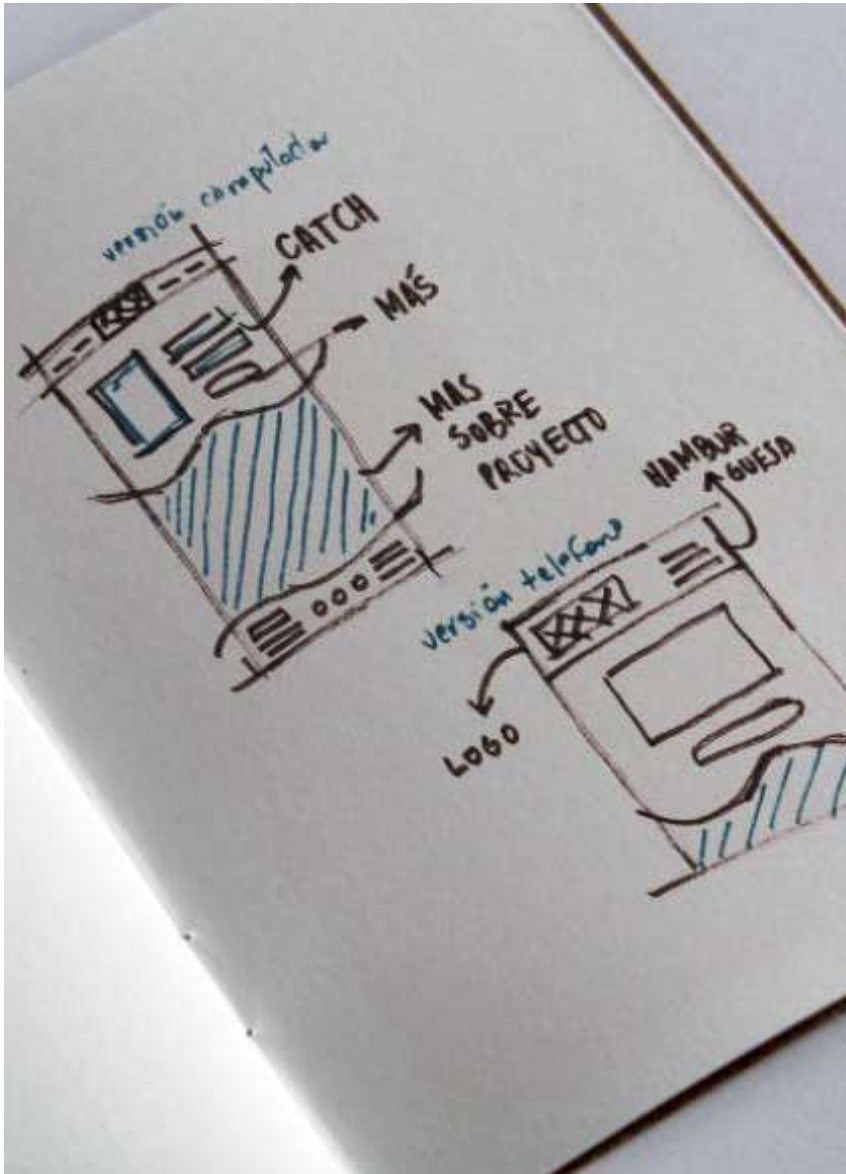 versión computador
CATCH
MÁS
MAS
SOBRE
PROYECTO
HAMBUR
GUESA
versión telefono
LOGO